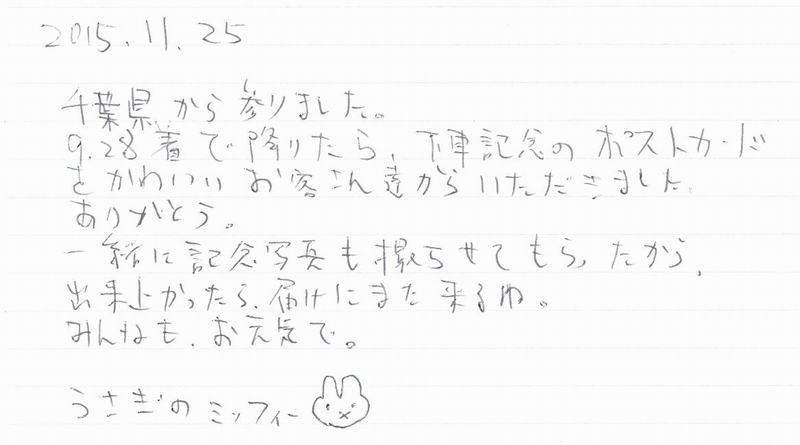 2015.11.25
千葉県から参りました。
9.28着で降りたら、下車記念のポストカード
をかわいいお客さん達からいただきました。
ありがとう。
一緒に記念写真も撮らせてもらったから、
出来上がったら、届けにまた来るね。
みんなも、お元気で。
うさぎのミッフィー